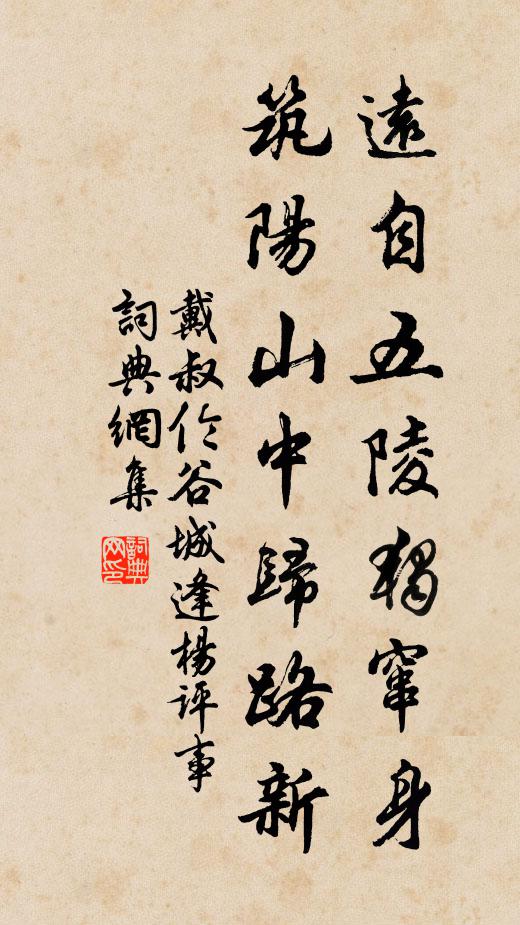 遠自五陵獨竄身
筑陽山中歸路新
戴叔伦谷城逢楊评事
詞典網集
詞典网印